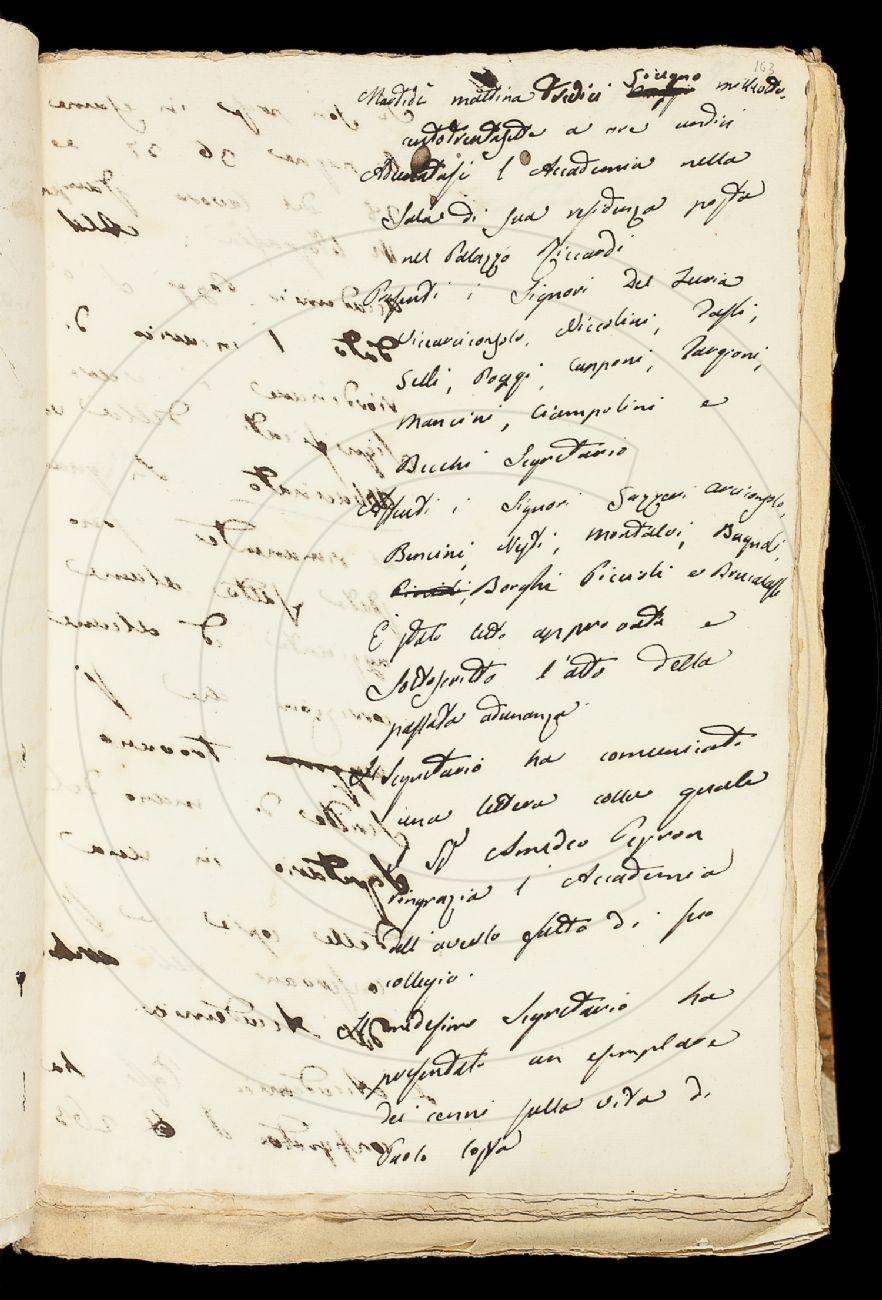 163
Martedì mattina Tredici Giugno milleotto-
centotrentasette a ore undici
Adunatasi l'Accademia nella
Sala di sua residenza posta
nel Palazzo Riccardi
Presenti i Signori Del Furia
Vicearciconsolo, Niccolini, Tassi,
Selli, Poggi, Capponi, Targioni,
Mancini, Ciampolini e
Becchi Segretario
Assenti i Signori Gazzeri Arciconsolo,
Bencini, Nesti, Montalvi, Bagnoli,
Borghi Piccioli e Brucalassi
È stato letto approvato e
Sottoscritto l'atto della
passata adunanza.
Il Segretario ha comunicato
una lettera colla quale
il Sigr Amedeo Peyron
ringrazia l'Accademia
dell'averlo eletto di suo
collegio.
Il medesimo Segretario ha
presentato un esemplare
dei cenni sulla vita di
Paolo Costa